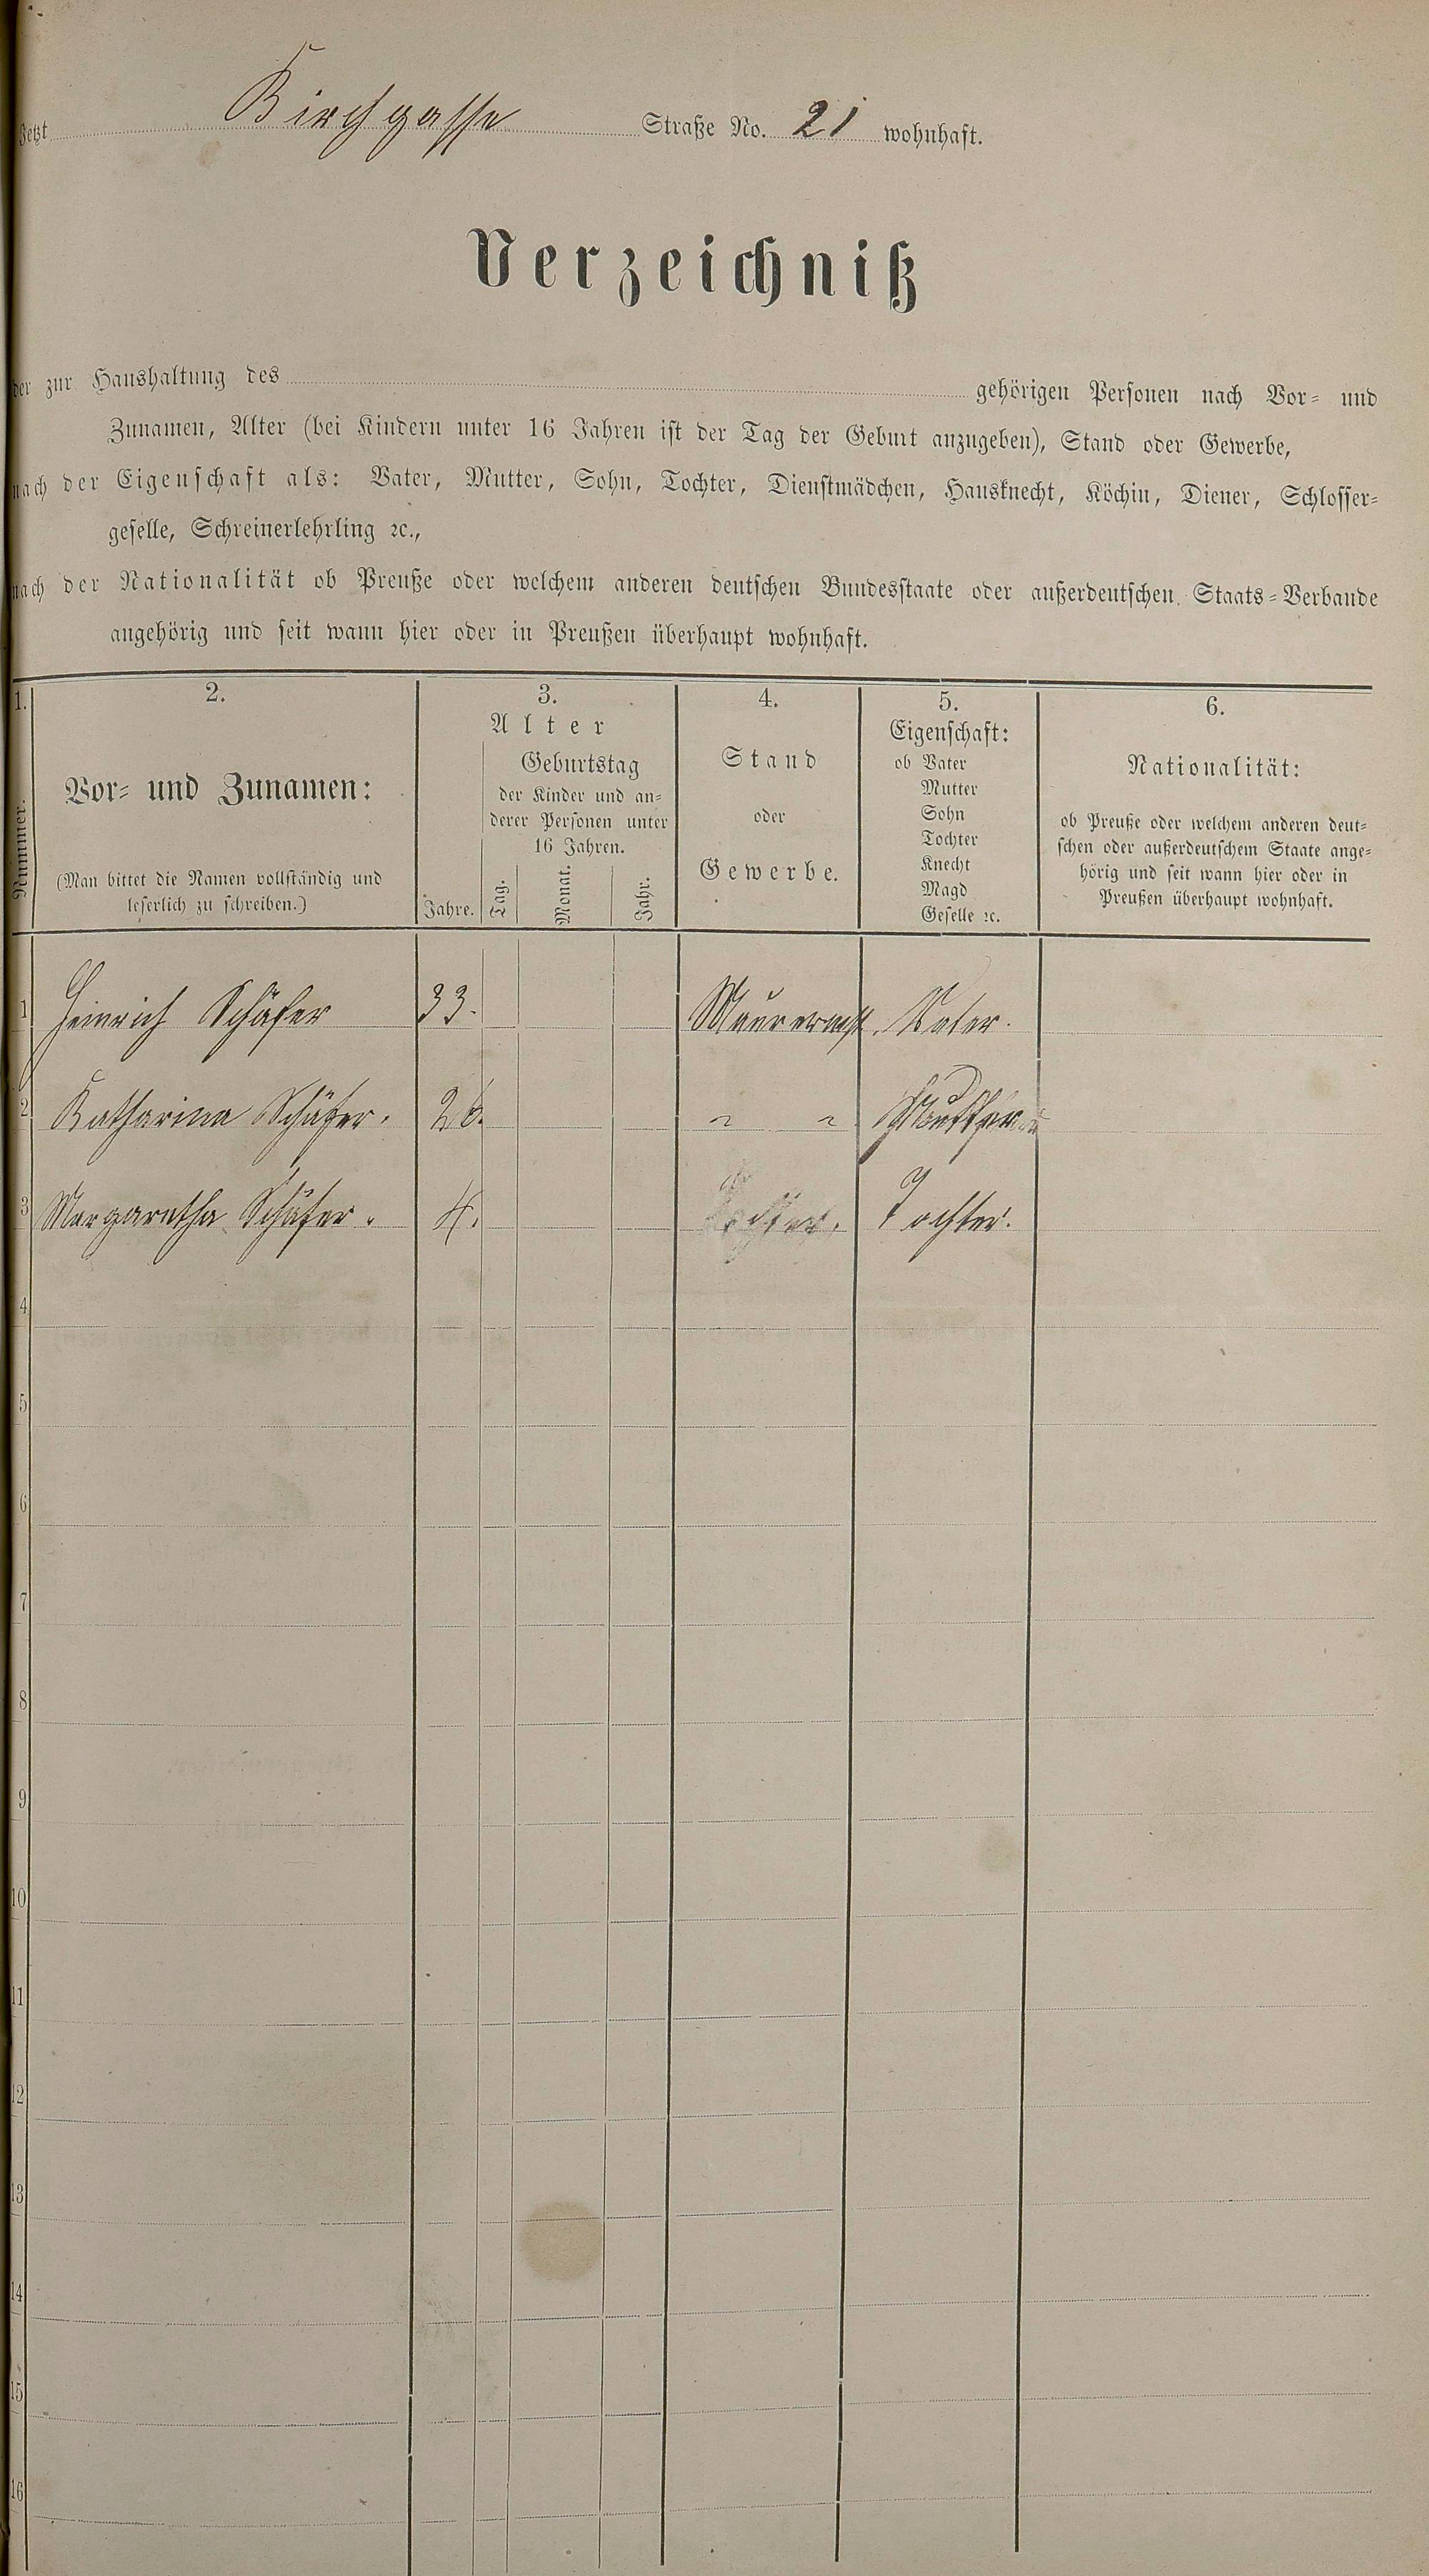 Jetzt Kirchgasse Straße No. 21 wohnhaft.
Verzeichniß
der zur Haushaltung des gehörigen Personen nach Vor- und
Zunamen, Alter (bei Kindern unter 16 Jahren ist der Tag der Geburt anzugeben), Stand oder Gewerbe,
nach der Eigenschaft als: Vater, Mutter, Sohn, Tochter, Dienstmädchen, Hausknecht, Köchin, Diener, Schlosser-
geselle, Schreinerlehrling ꝛc.,
nach der Nationalität ob Preuße oder welchem anderen deutschen Bundesstaate oder außerdeutschen Staats-Verbande
angehörig und seit wann hier oder in Preußen überhaupt wohnhaft.
1.
Nummer.
2.
Vor- und Zunamen:
(Man bittet die Namen vollständig und
leserlich zu schreiben.)
3.
Alter
Geburtstag
der Kinder und an-
derer Personen unter
16 Jahren.
Jahre. Tag. Monat. Jahr.
4.
Stand
oder
Gewerbe.
5.
Eigenschaft:
ob Vater
Mutter
Sohn
Tochter
Knecht
Magd
Geselle ꝛc.
6.
Nationalität:
ob Preuße oder welchem anderen deut-
schen oder außerdeutschem Staate ange-
hörig und seit wann hier oder in
Preußen überhaupt wohnhaft.
1 Heinrich Schäfer 33. Vater.
2 Katharina Schäfer. 26. " " Mutter.
3 Margaretha Schäfer. 4. Tochter.
4
5
6
7
8
9
10
11
12
13
14
15
16